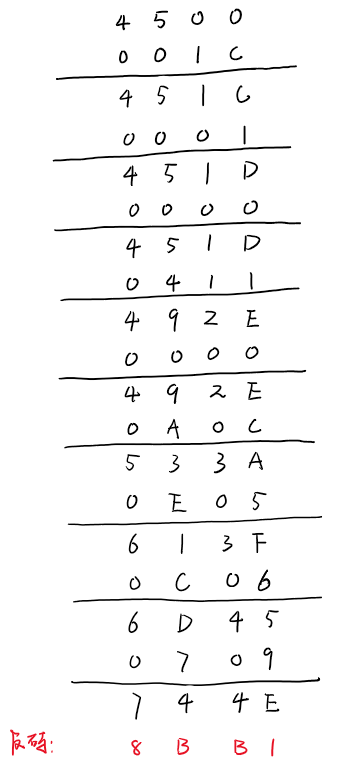 4 5 0 0
0 0 1 C
4 5 1 C
0 0 0 1
4 5 1 D
0 0 0 0
4 5 1 D
0 4 1 1
4 9 2 E
0 0 0 0
4 9 2 E
0 A 0 C
5 3 3 A
0 E 0 5
6 1 3 F
0 C 0 6
6 D 4 5
0 7 0 9
7 4 4 E
反码: 8 B B 1